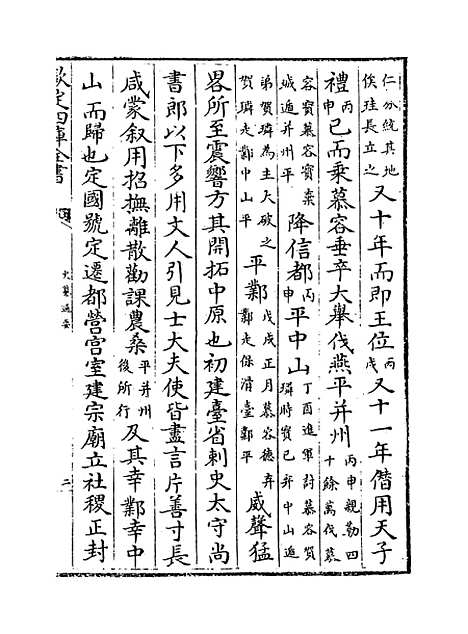 仁分統其地侯珪長立之又十年而即王位丙戌又十一年僭用天子
禮丙申已而乘慕容垂卒大舉伐燕平并州丙申親勒四十餘萬伐慕
容寳慕容寳棄城遁并州平降信都丙申平中山丁酉進軍討慕容賀璘時寳已弃中山遁
弟賀璘為主大破之賀璘走鄴中山平平鄴戊戌正月慕容德弃鄴走保滑臺鄴平威聲猛
畧所至震響方其開拓中原也初建臺省刺史太守尚
書郎以下多用文人引見士大夫使皆盡言片善寸長
咸蒙叙用招撫離散勸課農桑平并州後所行及其幸鄴幸中
山而歸也定國號定遷都營宫室建宗廟立社稷正封
欽定四庫全書
史纂通要
二